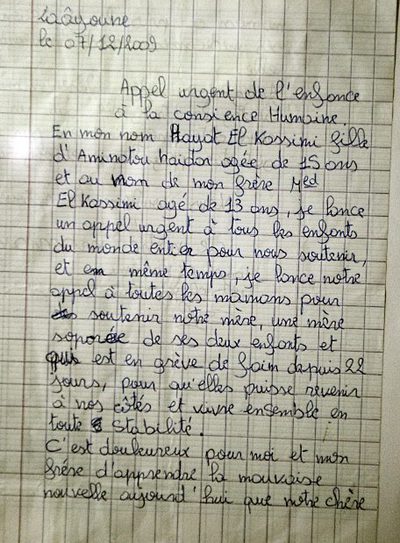 Laâyoune
le 07/12/2009
Appel urgent de l'enfonce
à la consience Humaine.
En mon nom Hayat El Kassimi fille
d'Aminatou haidar agée de 15 ans
et au nom de mon frère Med
El Kassimi agé de 13 ans, je lance
un appel urgent à tous les enfants
du monde entier pour nous soutenir,
et en même temps, je lance notre
appel à toutes les mamans pour
soutenir notre mère, une mère
soporée de ses deux enfants et
qui est en grève de faim depuis 22
jours, pour qu'elles puisse revenir
à nos côtés et vivre ensemble en
toute stabilité.
C'est douleureux pour moi et mon
frère d'apprendre la mauvaise
nouvelle aujourd'hui que notre chère